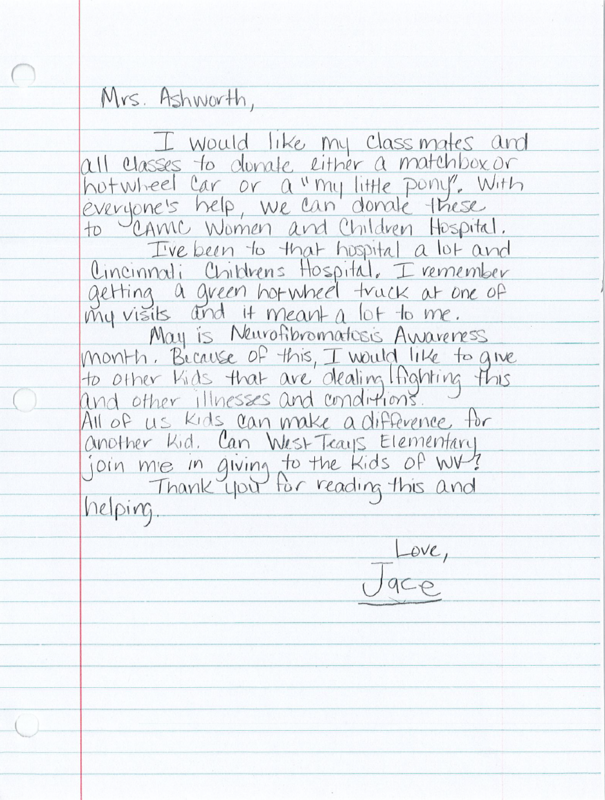 Mrs. Ashworth,
I would like my classmates and
all classes to donate either a matchbox or
hotwheel car or a "my little pony". With
everyone's help, we can donate these
to CAMC Women and Children Hospital.
I've been to that hospital a lot and
Cincinnati Childrens Hospital. I remember
getting a green hotwheel truck at one of
my visits and it meant a lot to me.
May is Neurofibromatosis Awareness
month. Because of this, I would like to give
to other kids that are dealing/fighting this
and other illnesses and conditions.
All of us kids can make a difference for
another kid. Can West Teays Elementary
join me in giving to the kids of WV?
Thank you for reading this and
helping.
Love,
Jace